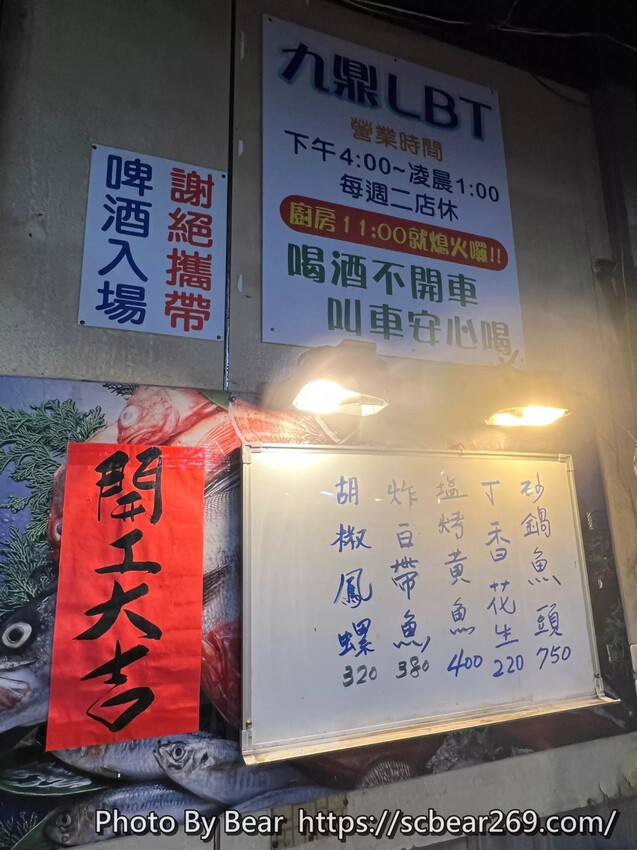 九鼎LBT
營業時間
下午4:00~凌晨1:00
每週二店休
廚房11:00就熄火囉!!
喝酒不開車
叫車安心喝
謝絕攜帶
啤酒入場
開工大吉
砂鍋魚頭750
丁香花生220
塩烤黃魚400
炸白帶魚380
胡椒鳳螺320
Photo By Bear https://scbear269.com/